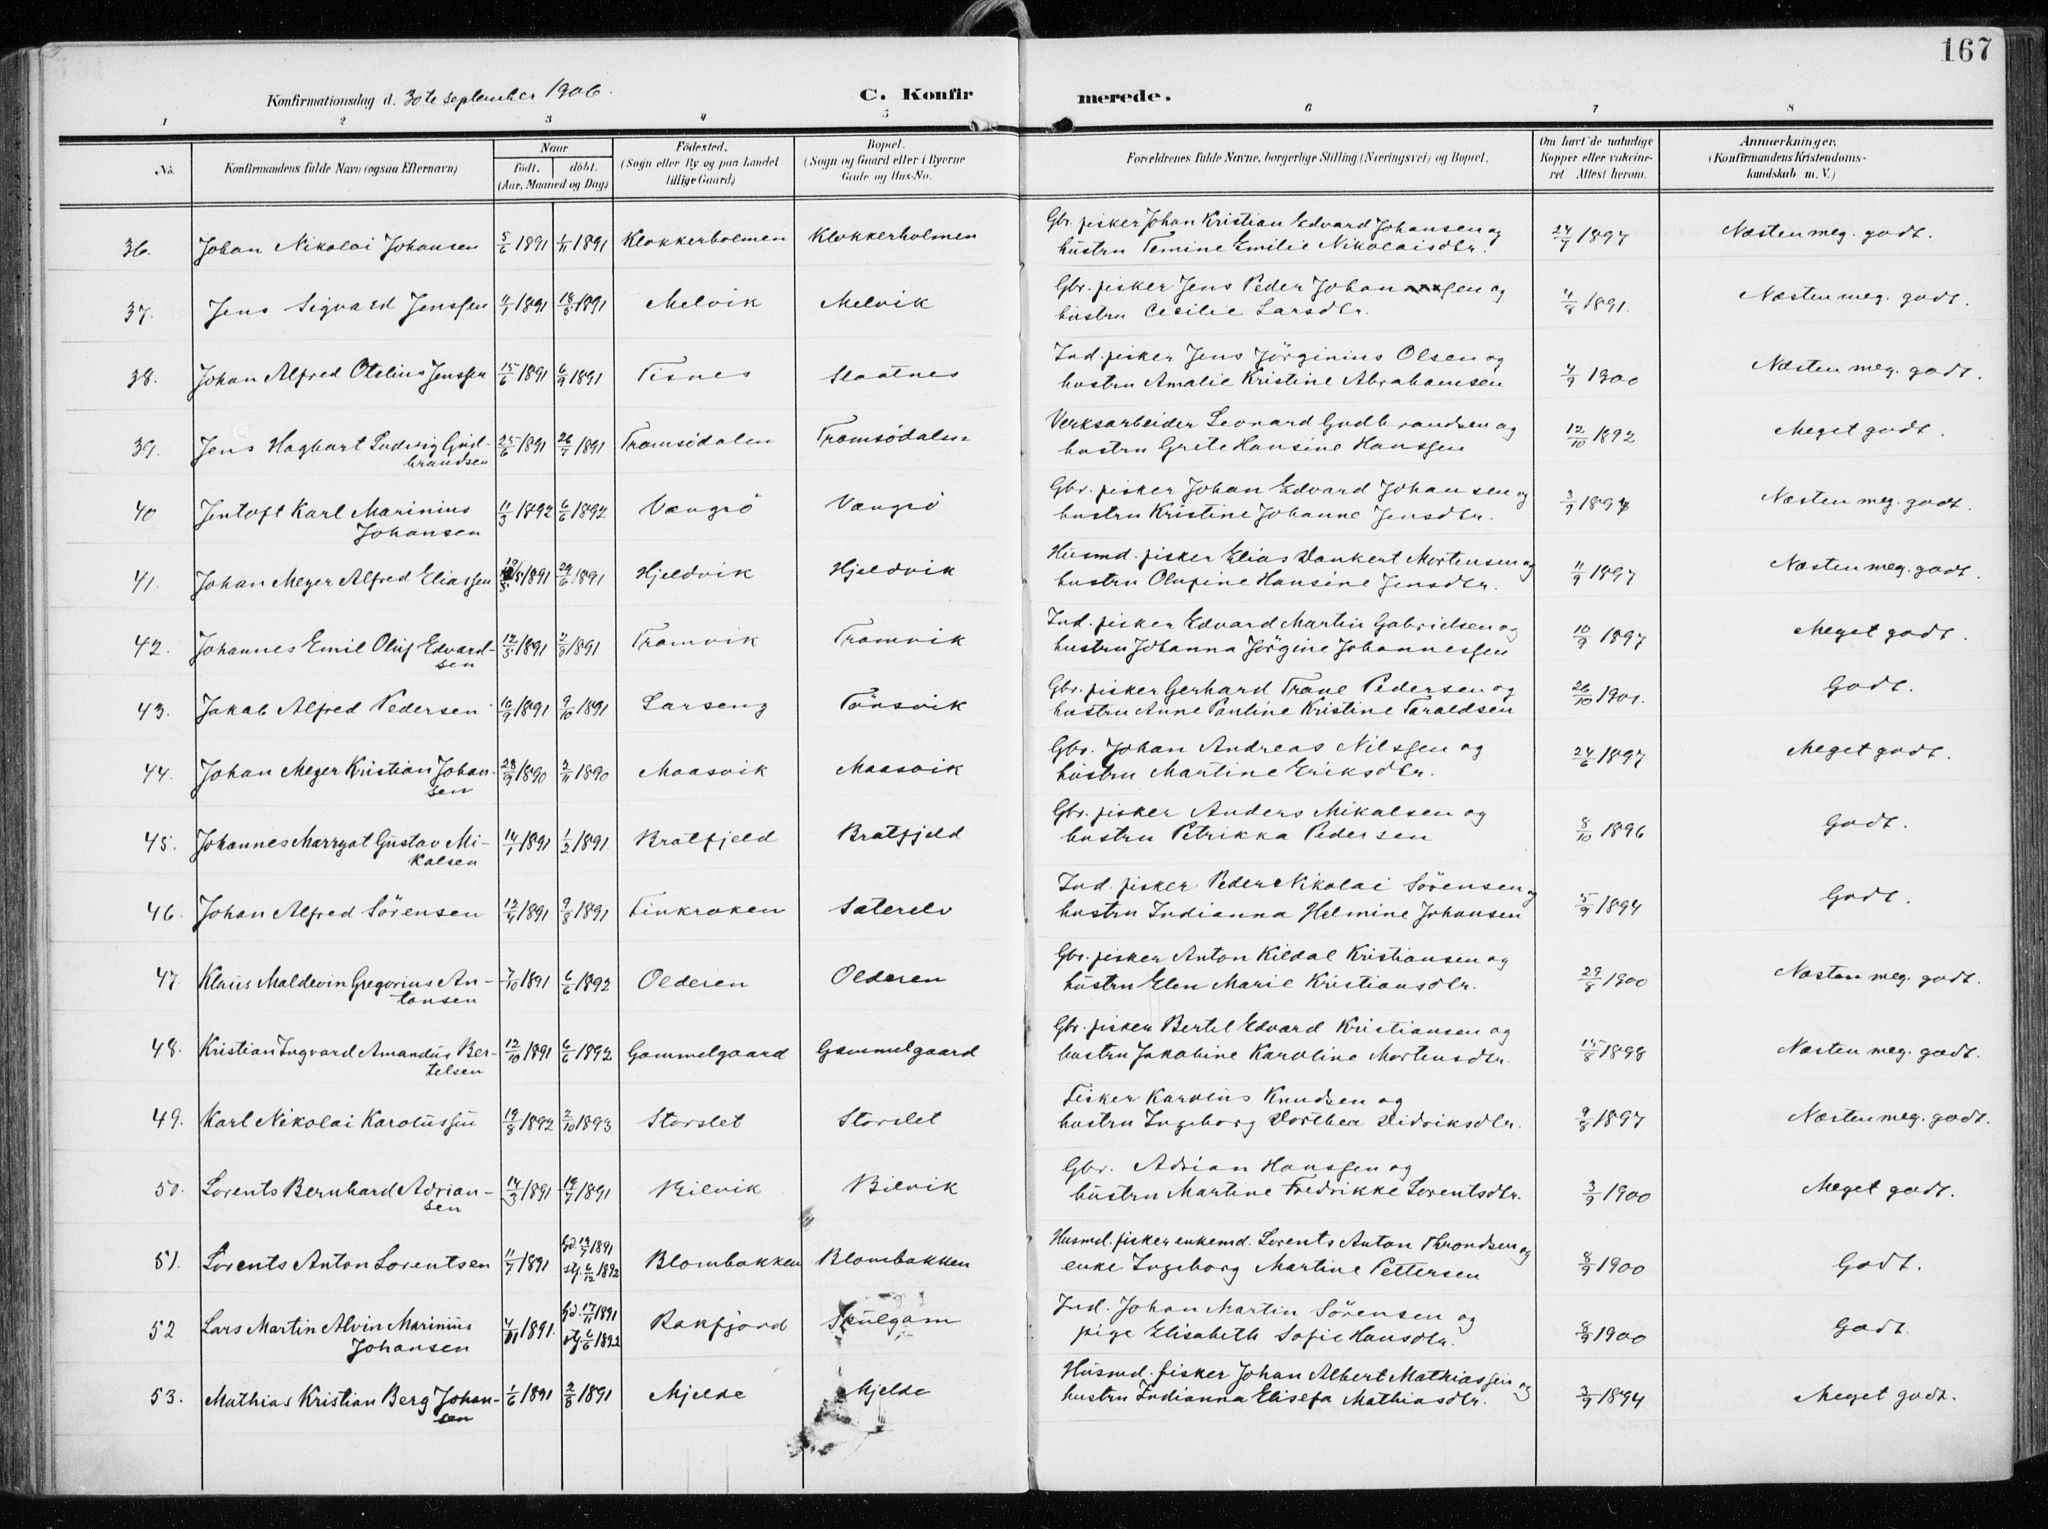 167
Konfirmationsdag d. 30te september 1906.
C. Konfirmerede.
1 2 3 4 5 6 7 8
No.
Konfirmandens fulde Navn (ogsaa Efternavn)
Naar
født. døbt.
(Aar, Maaned og Dag)
Fødested.
(Sogn eller By og paa Landet
tillige Gaard)
Bopæl.
(Sogn og Gaard eller i Byerne
Gade og Hus-No.
Forældrenes fulde Navne, borgerlige Stilling (Næringsvei) og Bopæl.
Om havt de naturlige
Kopper eller vakcine-
ret Attest herom.
Anmærkninger.
(Konfirmandens Kristendoms-
kundskab m. V.)
36. Johan Nikolai Johansen 5/6 1891 1/11 1891 Klokkerholmen Klokkerholmen Gbr. fisker Johan Kristian Edvard Johansen og
hustru Temine Emilie Nikolaisdtr. 24/7 1897 Næsten meg. godt.
37. Jens Sigvard Jenssen 11/1 1891 18/5 1891 Melvik Melvik Gbr. fisker Jens Peder Johansen og
hustru Cecilie Larsdtr. 4/8 1891. Næsten meg. godt.
38. Johan Alfred Otelius Jenssen 15/6 1891 6/9 1891 Tisnes Slaatnes Ind. fisker Jens Jörginius Olsen og
hustru Amalie Kristine Abrahamsen 4/9 1900 Næsten meg. godt.
39. Jens Hagbart Ludvig Gud-
brandsen 25/6 1891 26/7 1891 Tromsödalen Tromsödalen Verksarbeider Leonard Gudbrandsen og
hustru Grete Hansine Hanssen 12/10 1892 Meget godt.
40 Jentoft Karl Marinius
Johansen 11/3 1892 6/6 1892 Vængsö Vængsö Gbr. fisker Johan Edvard Johansen og
hustru Kristine Johanne Jensdtr. 3/9 1897 Næsten meg. godt.
41. Johan Meyer Alfred Eliassen 1891 29/6 1891 Hjeldvik Hjeldvik Husmd. fisker Elias Dankert Mortensen og
hustru Olufine Hansine Jensdtr. 11/9 1897 Næsten meg. godt.
42. Johannes Emil Oluf Edvard-
sen 12/5 1891 2/8 1891 Tromvik Tromvik Ind. fisker Edvard Martin Gabrielsen og
hustru Johanna Jörgine Johannessen 10/9 1897 Meget godt.
43. Jakob Alfred Pedersen 16/9 1891 9/10 1891 Larseng Tönsvik Gbr. fisker Gerhard Trane Pedersen og
hustru Anne Pauline Kristine Taraldsen 26/10 1901. Godt.
44. Johan Meyer Kristian Johan-
sen 28/9 1890 2/11 1890 Maasvik Maasvik Gbr. Johan Andreas Nilssen og
hustru Martine Eriksdtr. 24/6 1897 Meget godt.
45. Johannes Marryat Gustav Mi-
kalsen 14/1 1891 1/2 1891 Bratfjeld Bratfjeld Gbr. fisker Anders Mikalsen og
hustru Petrikka Pedersen 8/10 1896 Godt.
46. Johan Alfred Sörensen 12/4 1891 9/8 1891 Finkroken Säterelv Ind. fisker Peder Nikolai Sörensen og
hustru Indianna Helmine Johansen 5/9 1894 Godt.
47. Klaus Maldevin Gregorius An-
tonsen 7/10 1891 6/6 1892 Olderen Olderen Gbr. fisker Anton Kildal Kristiansen og
hustru Elen Marie Kristiansdtr. 29/8 1900 Næsten meg. godt.
48. Kristian Ingvard Amandus Ber-
telsen 12/10 1891 6/6 1892 Gammelgaard Gammelgaard Gbr. fisker Bertel Edvard Kristiansen og
hustru Jakobine Karoline Mortensdtr. 15/8 1898 Næsten meg. godt.
49. Karl Nikolai Karolussen 19/8 1892 2/10 1893 Storslet Storslet Fisker Karolus Knudsen og
hustru Ingeborg Dorthea Didriksdtr. 9/8 1897 Næsten meg. godt.
50. Lorents Bernhard Adrian-
sen 14/3 1891 19/7 1891 Bilvik Bilvik Gbr. Adrian Hanssen og
hustru Martine Fredrikke Lorentsdtr. 3/9 1900 Meget godt.
51. Lorents Anton Lorentsen 11/7 1891 hjd. 19/7 1891
stj. 6/12 1892 Blombakken Blombakken Husmd. fisker enkemd. Lorents Anton Throndsen og
enke Ingeborg Martine Pettersen 8/9 1900 Godt.
52 Lars Martin Alvin Marinius
Johansen 4/11 1891. hjd. 17/11 1891
stj. 6/6 1892 Rakfjord Skulgam Ind. Johan Martin Sörensen og
pige Elisabeth Sofie Hansdtr. 8/9 1900 Godt.
53. Mathias Kristian Berg Johan-
sen 1/6 1891 2/8 1891 Mjelde Mjelde Husmd. fisker Johan Albert Mathiassen og
hustru Indianna Elisefa Mathiasdtr. 3/9 1894 Meget godt.